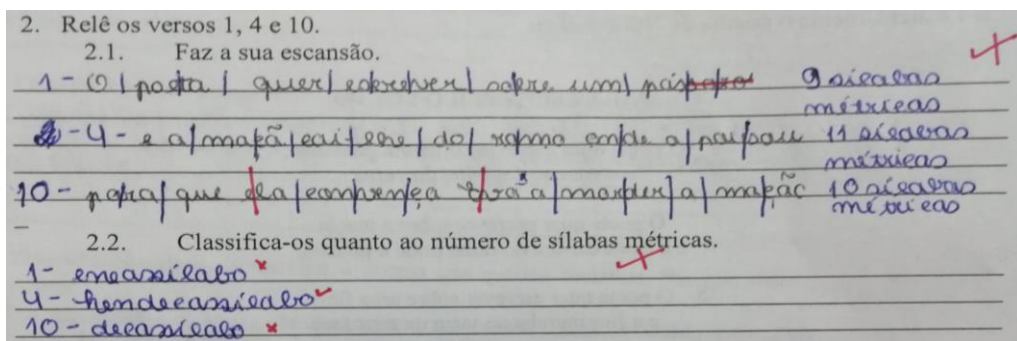 2. Relê os versos 1, 4 e 10.
2.1. Faz a sua escansão.
1 - O | poeta | quer | escrever | sobre um | pás 9 sílabas
métricas
- 4 - e a | maçã | cai | lhe | do | ramo on|de a | pousou 11 sílabas
métricas
10 - pa|ra | que ela | com|a | mor|der | a | maçã 10 sílabas
métricas
2.2. Classifica-os quanto ao número de sílabas métricas.
1 - eneassílabo
4 - hendecassílabo
10 - decassílabo